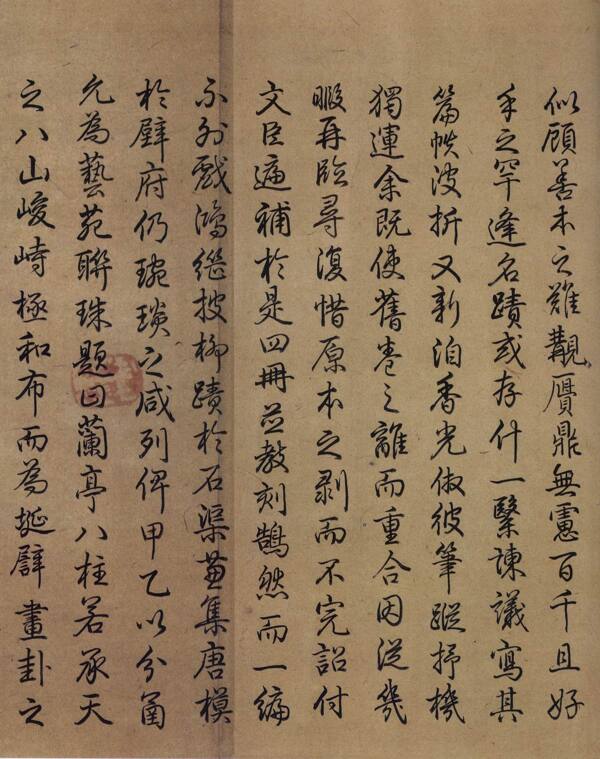 似顧善本之難覯贋鼎無慮百千且好
手之罕逢名蹟或存什一繄諫議寫其
篇帙波折又新洎香光倣彼筆蹤抒機
獨運余既使舊卷之離而重合因從幾
暇再臨尋復惜原本之剥而不完詔付
文臣遍補於是四冊並教刻鵠然而一編
不外戲鴻繼披柳蹟於石渠兼集唐模
於壁府仍琬琰之咸列俾甲乙以分函
允為藝苑聯珠題曰蘭亭八柱若承天
之八山峻峙極和布而為挻擘畫卦之